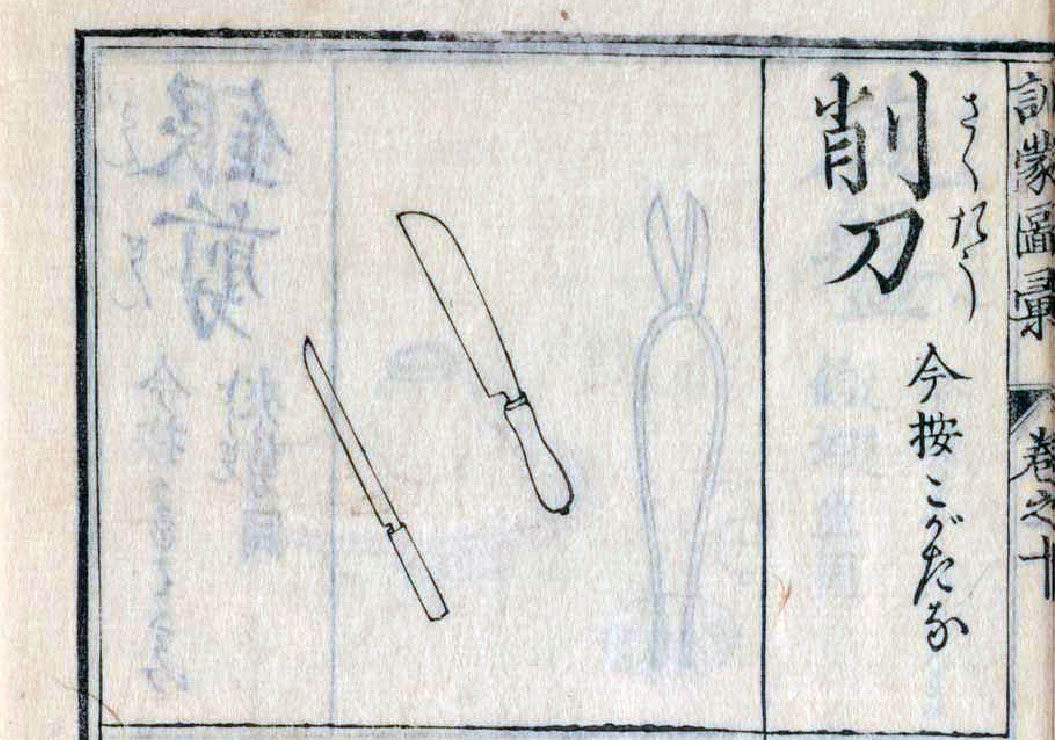 訓蒙圖彙 卷之十
さくたう
削刀
今按こがたな